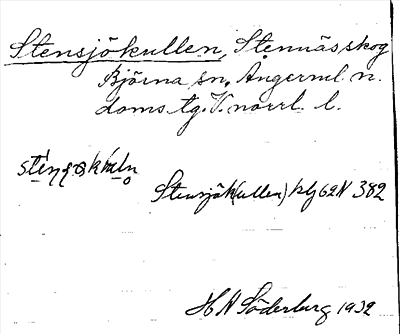 Stensjökullen, Stennäs skog
Björna sn, Ångerml. n.
doms. tg. V.norrl. l.
Stensjök(ullen) klg 62 N 382
H A Söderburg 1932